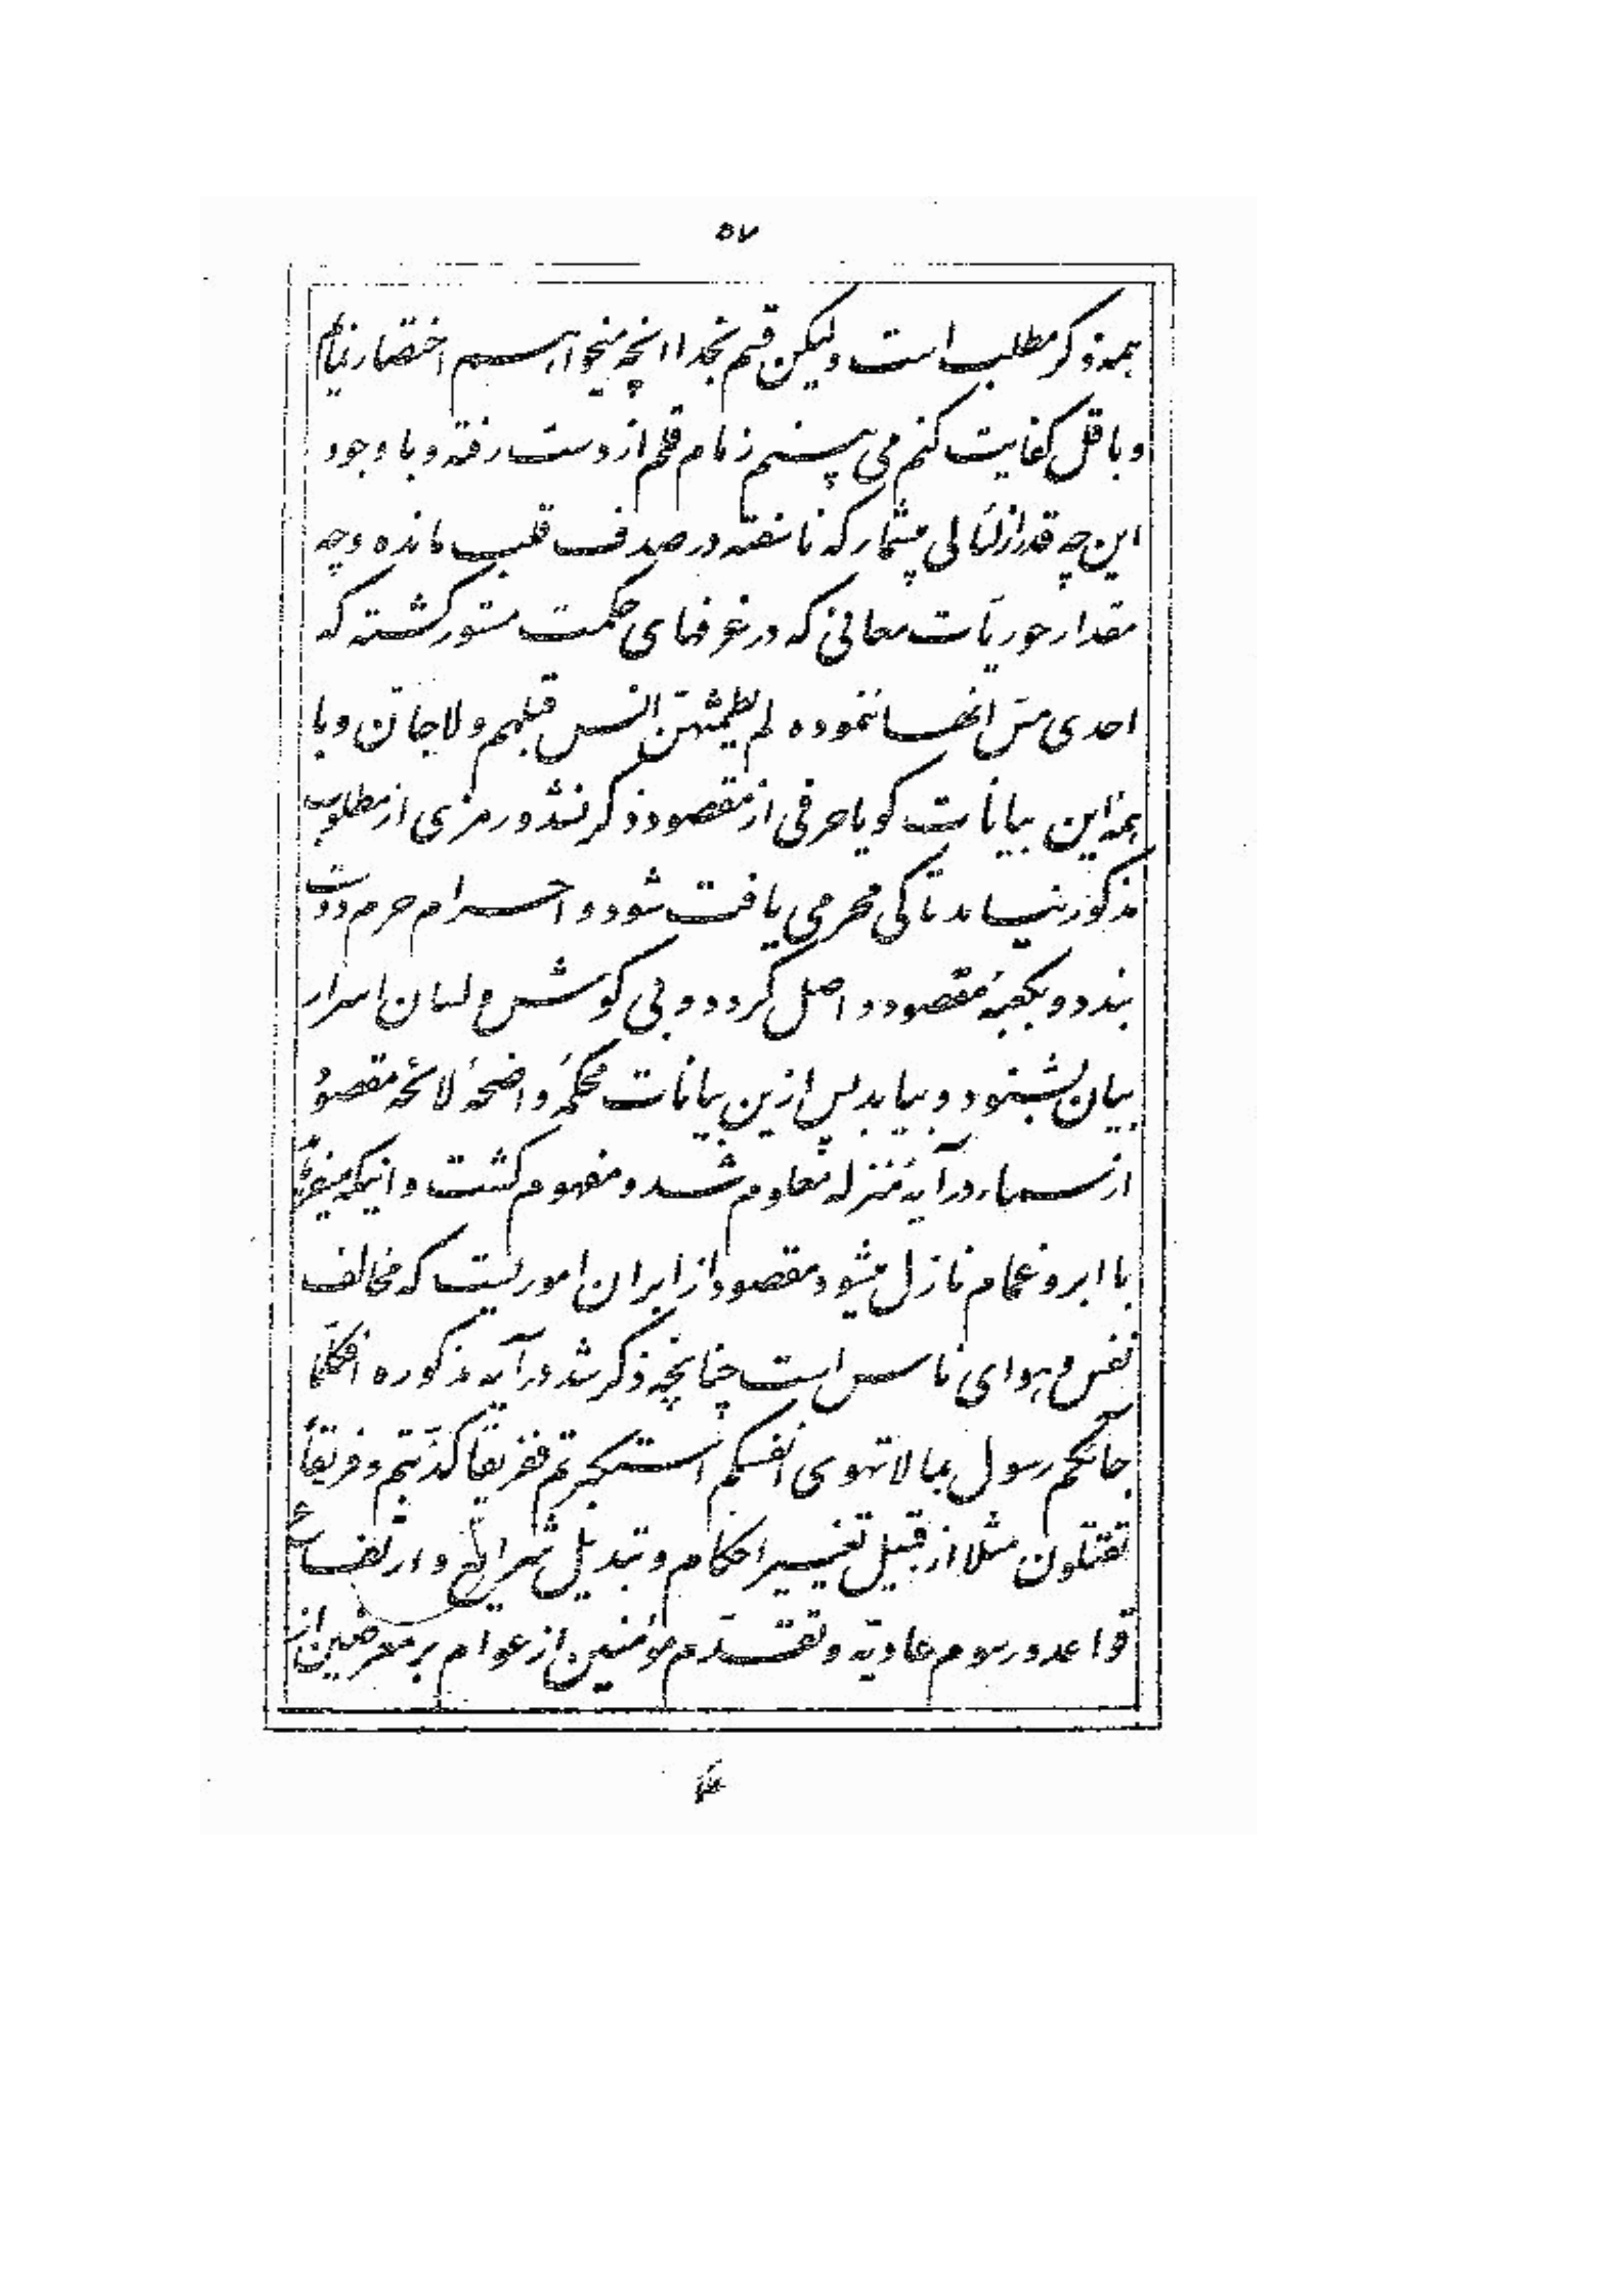 ۵۷
همه ذکر مطلب است ولیکن قسم بخدا انچه میخواهم اختصار نمایم
و باقل کفایت کنم می بینم زمام قلم از دست رفته و با وجود
این چه قدر از لئالی بیشمار که ناسفته در صدف قلب مانده و چه
مقدار حوریّات معانی که در غرفهای حکمت مستور کشته که
احدی مسّ انها ننموده لم یطمثهنّ انس قبلهم و لا جانّ و با
همهٔ این بیانات کویا حرفی از مقصود ذکر نشد و رمزی از مطلوب
مذکور نیامد تا کی محرمی یافت شود و احرام حرم دوست
بندد و بکعبهٔ مقصود واصل کردد و بی کوش و لسان اسرار
بیان بشنود و بیابد پس ازین بیانات محکمهٔ واضحهٔ لائحه مقصود
از سماء در آیهٔ منزله معلوم شد و مفهوم کشت و اینکه میفرماید
با ابر و غمام نازل میشود مقصود از ابر ان اموریست که مخالف
نفس و هوای ناس است چنانچه ذکر شد در آیه مذکوره افکلّما
جآئکم رسول بما لا تهوی انفسکم استکبرتم ففریقاً کذّبتم و فریقاً
تقتلون مثلا از قبیل تغییر احکام و تبدیل شرایع و ارتفاع
قواعد و رسوم عادیّه و تقدّم مؤمنین از عوام بر معرضین از